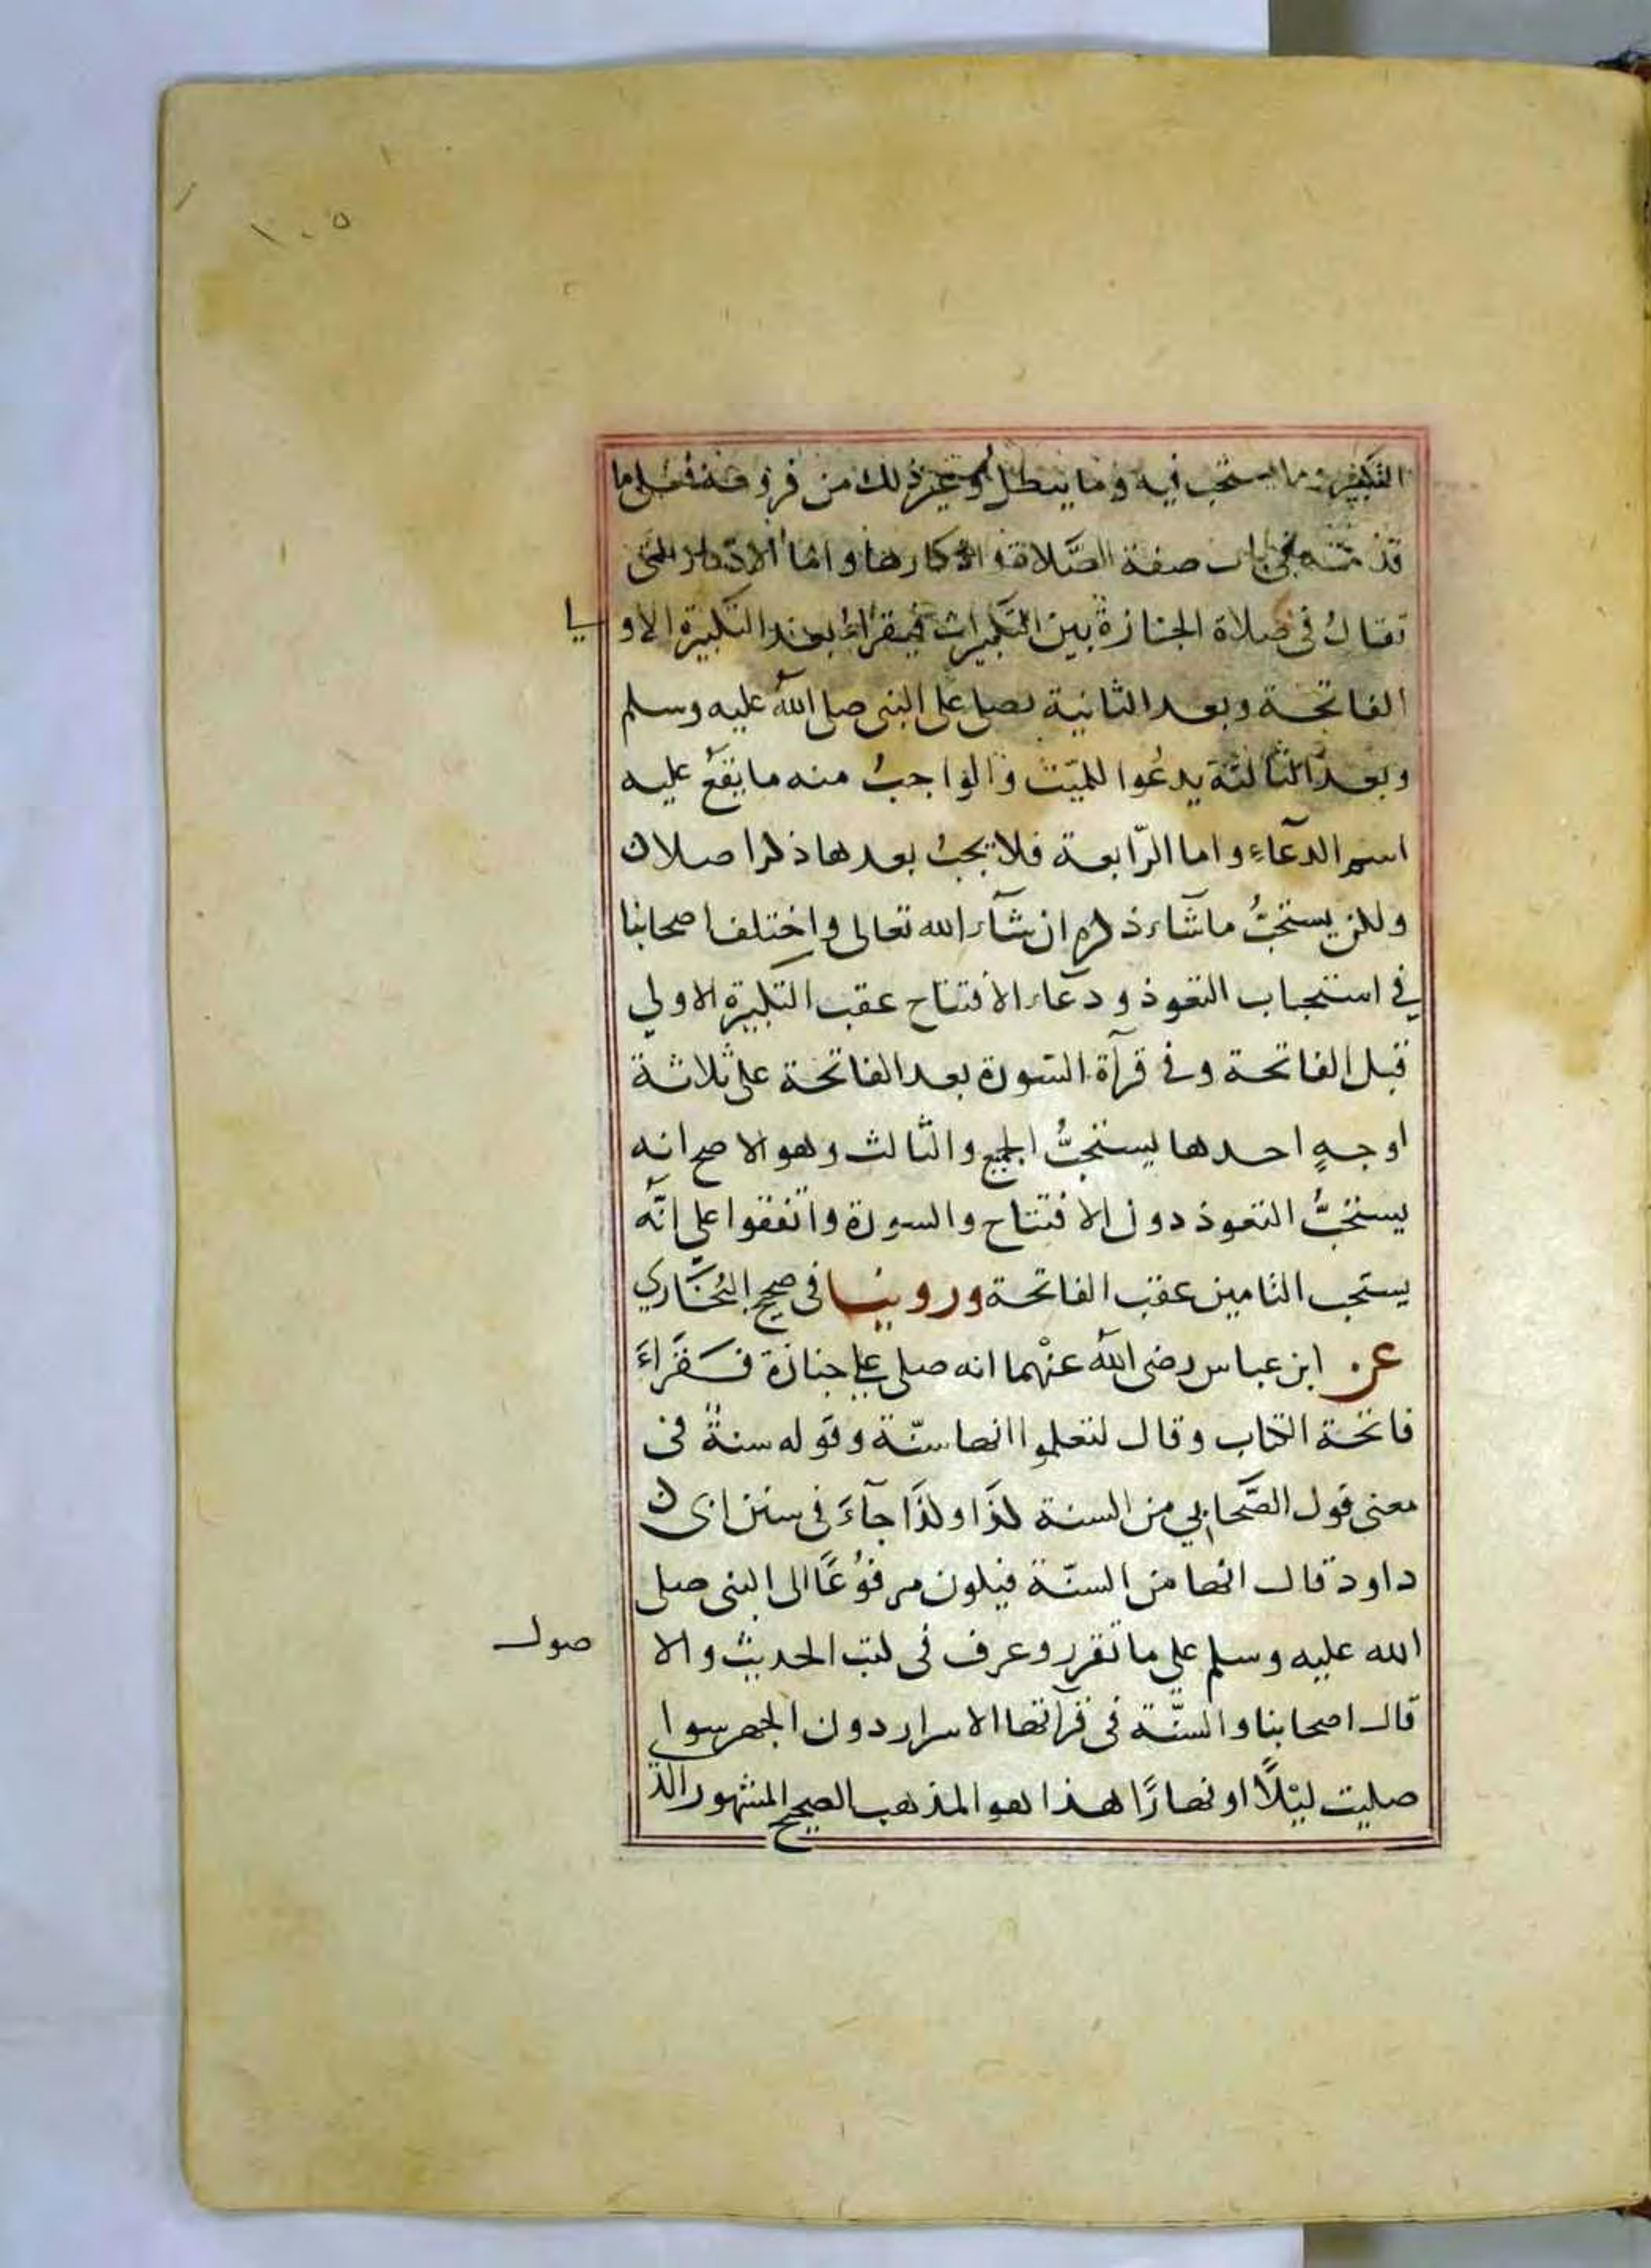 ١٠٥
التكفين وما يستحب فيه وما يبطل وغير ذلك من فروعه فعلى ما
قدمته في باب صفة الصّلاة واذكارها واما الاذكار التى
تقال فى صلاة الجنازة بين التكبيرات فيقراء بعد التكبيرة الاو لى
الفاتحة وبعد الثانية يصلى على النبى صلى الله عليه وسلم
وبعد الثالثة يدعُوا للميّت والواجبُ منه ما يقعُ عليه
اسم الدعآءِ واما الرّابعة فلا يجبُ بعدها ذكر اصلا ن
ولكن يستحبُّ ما شآء ذكره ان شآء الله تعالى واختلف اصحابنا
في استحباب التعوذ ودعآء الافتتاح عقب التكبيرة الاولي
قبل الفاتحة وفى قرآة السّورة بعد الفاتحة على ثلاثة
اوجهٍ احدها يستحبُّ الجميع والثالث وهو الاصح انه
يستحبُّ التعوذ دون الافتتاح والسورة واتفقوا على انّه
يستحب التامين عقب الفاتحة وروينا فى صحيح البُخاري
عن ابن عباس رضى الله عنْهما انه صلى على جنازة فقَراءَ
فاتحة الكتاب وقال لتعلموا انها سنّة وقوله سنةٌ فى
معنى قول الصَّحابي من السنة كذَا وكذَا جآءَ فى سنن ابى ن
داود قال انها من السنّة فيكون مرفوُعًا الى النبى صلى
الله عليه وسلم على ما تقرر وعرف فى كتب الحديث والا صول
قال اصحابنا والسنّة فى قرآتها الاسرار دون الجهر سوا
صليت ليْلًا او نهارًا هذا هو المذهب الصحيح المشهور الذ